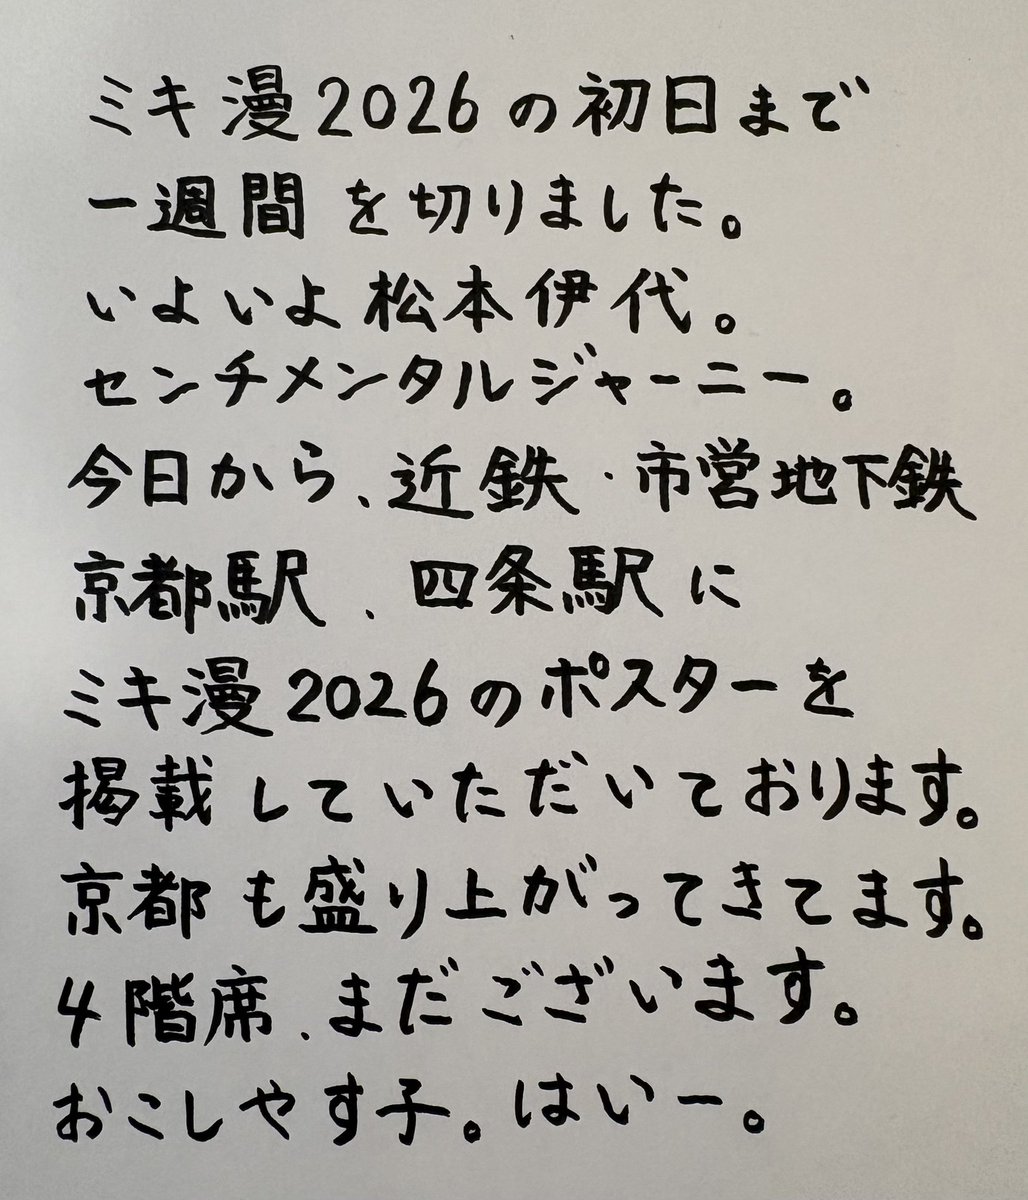 ミキ漫2026の初日まで
一週間を切りました。
いよいよ松本伊代。
センチメンタルジャーニー。
今日から、近鉄・市営地下鉄
京都駅、四条駅に
ミキ漫2026のポスターを
掲載していただいております。
京都も盛り上がってきてます。
4階席、まだございます。
おこしやす子。はいー。